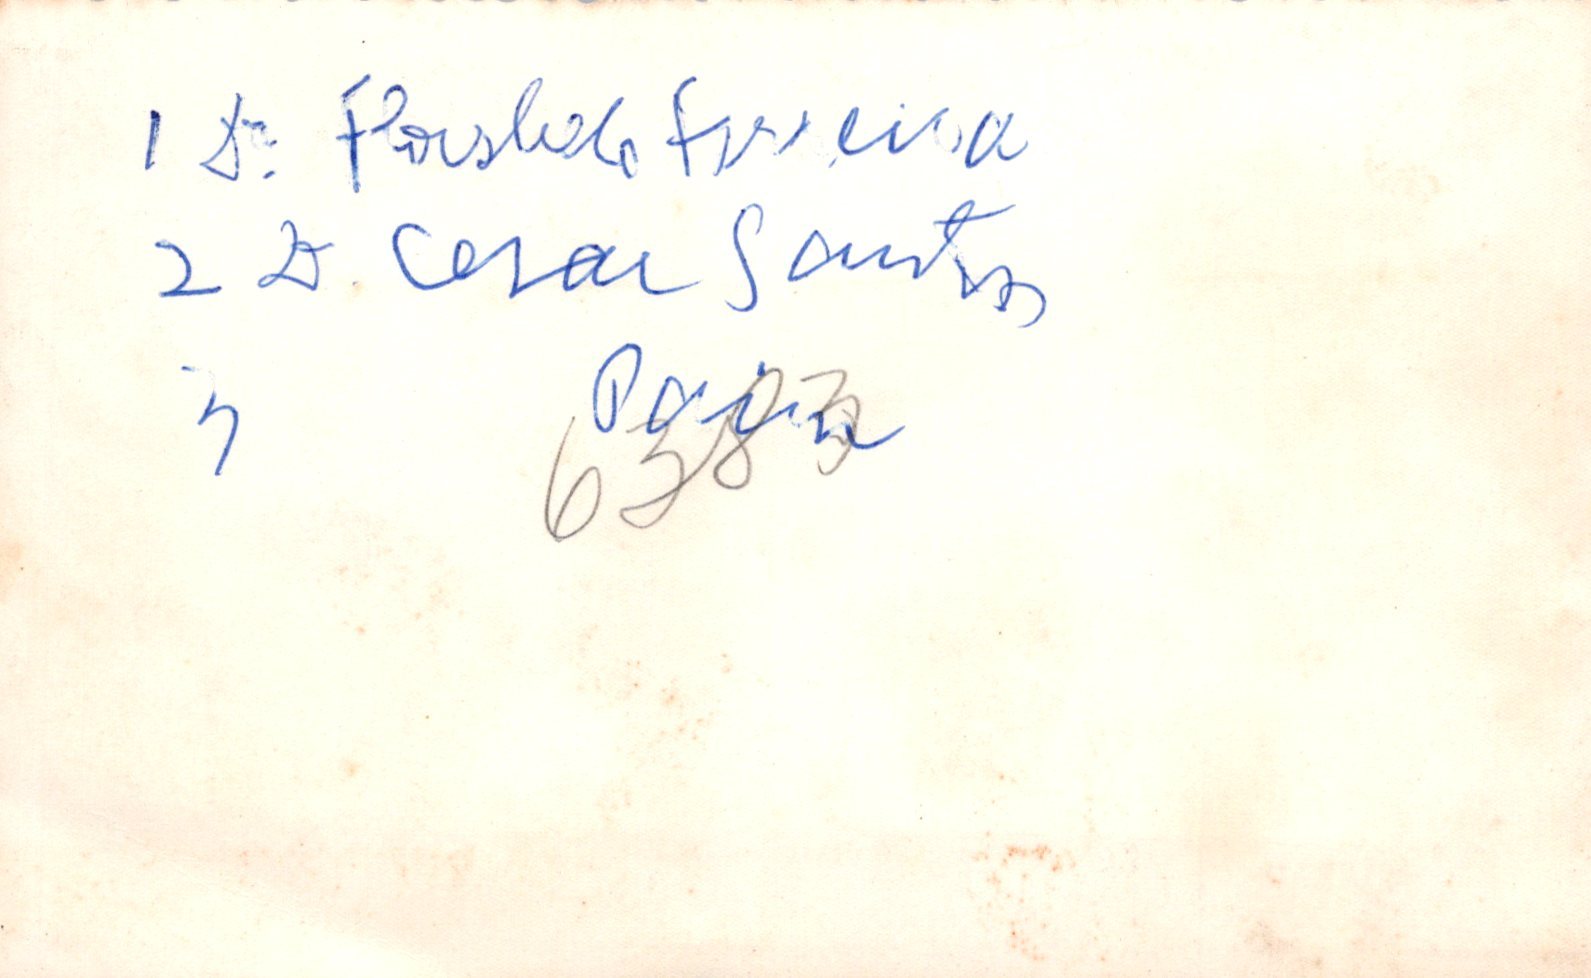 1 Dr. Florisbelo Ferreira
2 Dr. Cesar Santos
3
6383